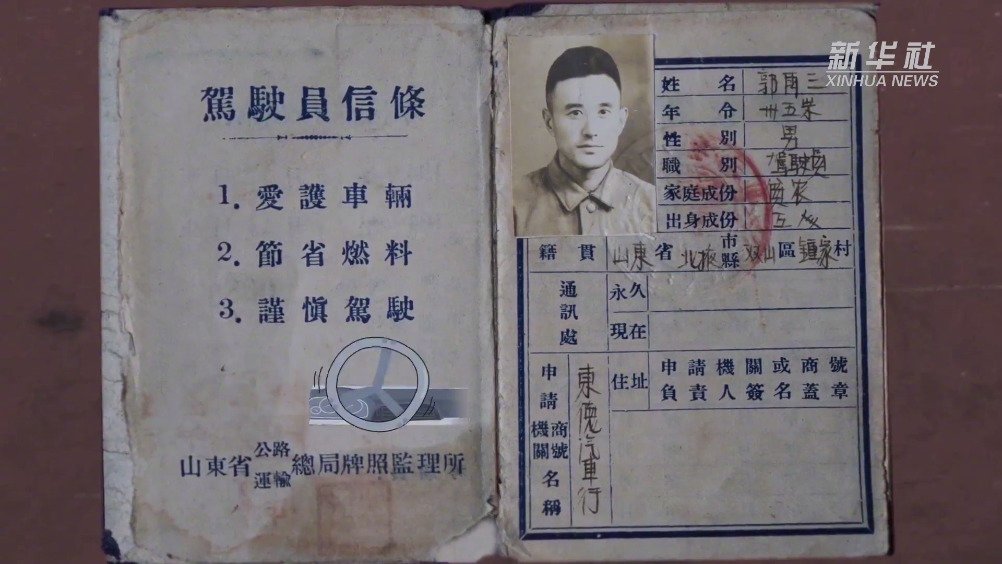 新华社
XINHUA NEWS
駕駛員信條
1. 愛護車輛
2. 節省燃料
3. 謹慎駕駛
山東省公路運輸總局牌照監理所
姓名 郭甫三
年令 卅五岁
性别 男
職别 駕駛員
家庭成份 貧农
出身成份 工人
籍貫 山東省北掖市縣双山區鍾家村
通訊處 永久
現在
申請機關商號名稱 東德汽車行
住址 申請機關或商號負責人簽名蓋章